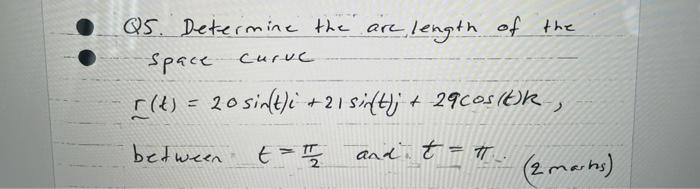 Q5. Determine the arc length of the
space curve
r(t) = 20 sin(t)i + 21 sin(t)j + 29cos(t)k,
between t = π/2 and t = π. (2 marks)